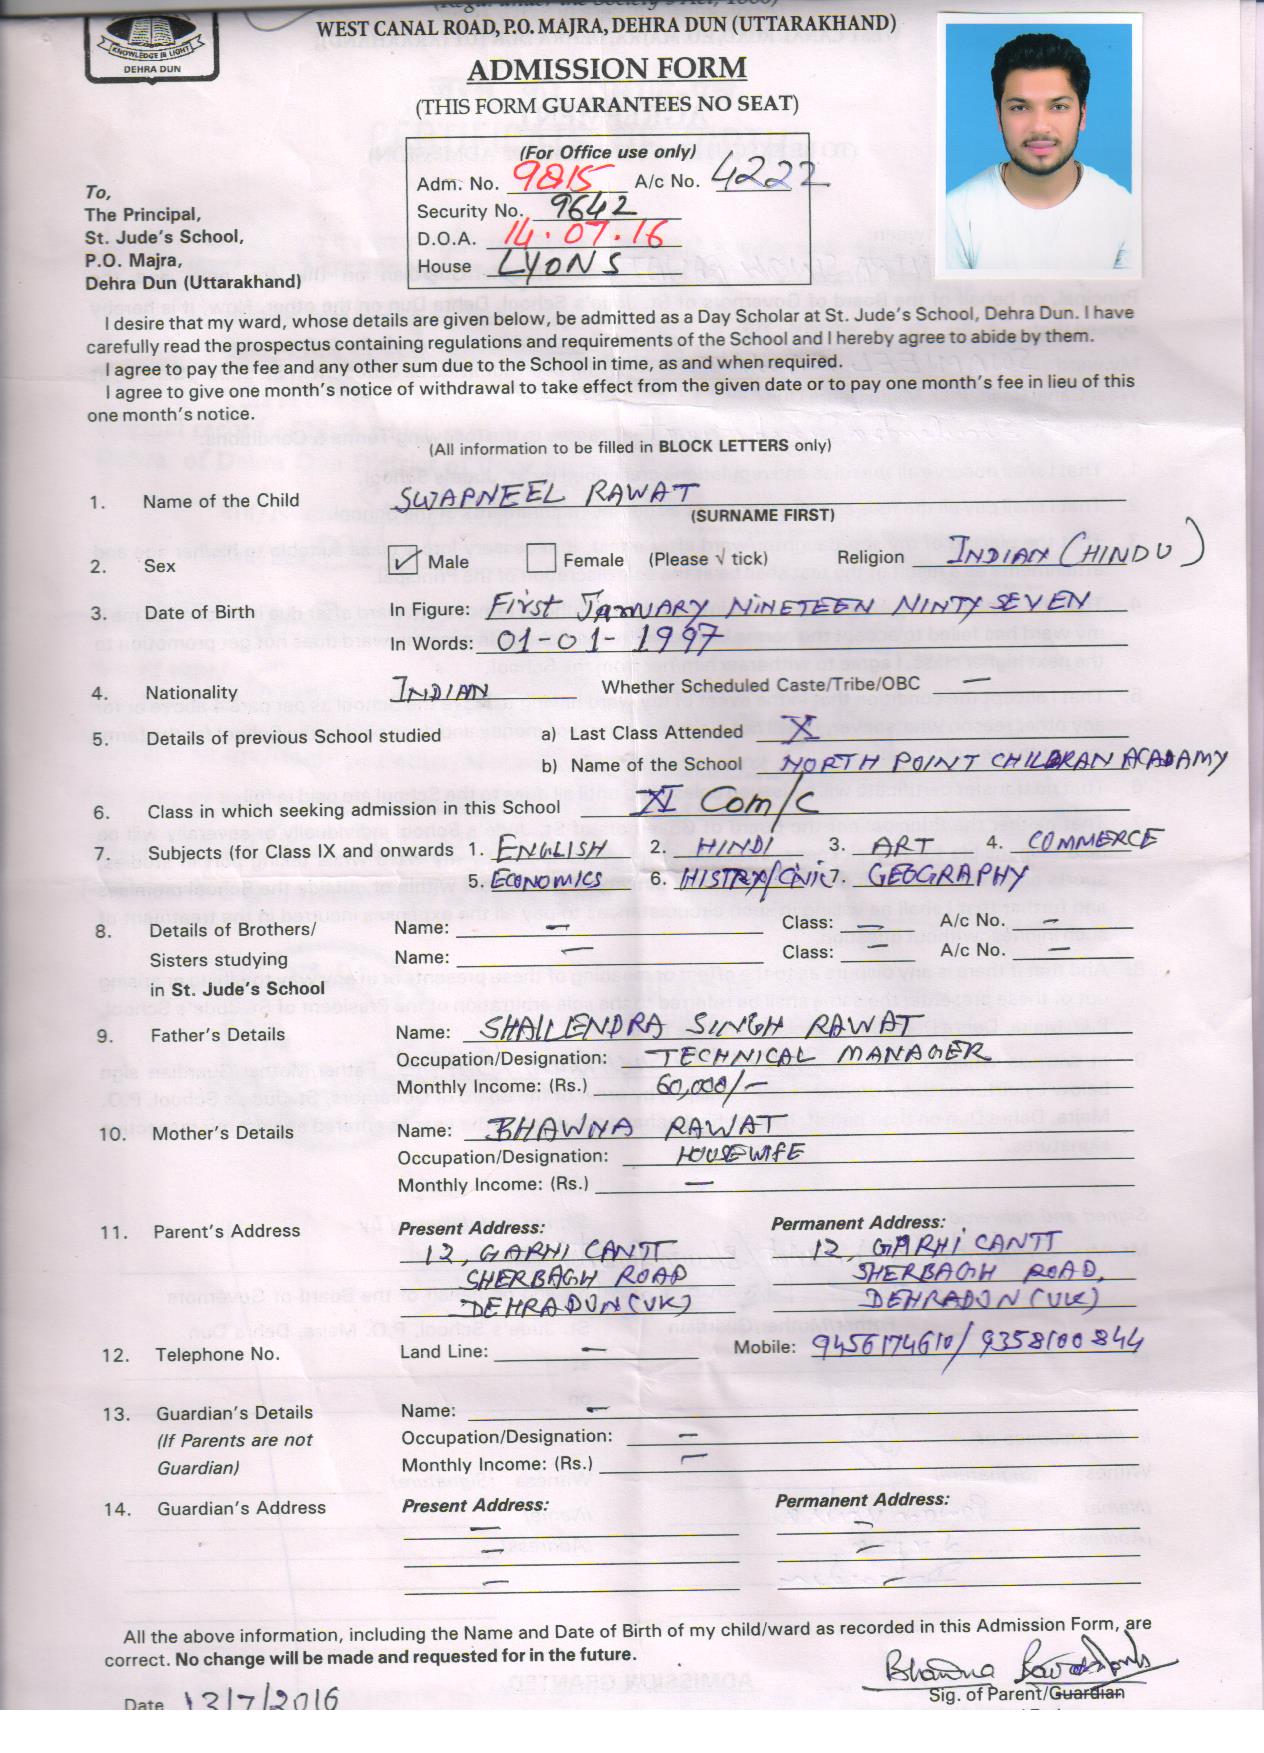 (Regd. under the Society's Act, 1860)
WEST CANAL ROAD, P.O. MAJRA, DEHRA DUN (UTTARAKHAND)
KNOWLEDGE IS LIGHT
DEHRA DUN
ADMISSION FORM
(THIS FORM GUARANTEES NO SEAT)
(For Office use only)
Adm. No. 9815 A/c No. 4222
Security No. 9642
D.O.A. 14.07.16
House LYONS
To,
The Principal,
St. Jude's School,
P.O. Majra,
Dehra Dun (Uttarakhand)
I desire that my ward, whose details are given below, be admitted as a Day Scholar at St. Jude's School, Dehra Dun. I have
carefully read the prospectus containing regulations and requirements of the School and I hereby agree to abide by them.
I agree to pay the fee and any other sum due to the School in time, as and when required.
I agree to give one month's notice of withdrawal to take effect from the given date or to pay one month's fee in lieu of this
one month's notice.
(All information to be filled in BLOCK LETTERS only)
1. Name of the Child SWAPNEEL RAWAT
(SURNAME FIRST)
2. Sex ✓ Male Female (Please √ tick) Religion INDIAN (HINDU)
3. Date of Birth In Figure: First JANUARY NINETEEN NINTY SEVEN
In Words: 01-01-1997
4. Nationality INDIAN Whether Scheduled Caste/Tribe/OBC —
5. Details of previous School studied a) Last Class Attended X
b) Name of the School NORTH POINT CHILDRAN ACADAMY
6. Class in which seeking admission in this School XI Com/C
7. Subjects (for Class IX and onwards 1. ENGLISH 2. HINDI 3. ART 4. COMMERCE
5. ECONOMICS 6. HISTRY/CIVIC 7. GEOGRAPHY
8. Details of Brothers/ Name: — Class: — A/c No. —
Sisters studying Name: — Class: — A/c No. —
in St. Jude's School
9. Father's Details Name: SHAILENDRA SINGH RAWAT
Occupation/Designation: TECHNICAL MANAGER
Monthly Income: (Rs.) 60,000/-
10. Mother's Details Name: BHAWNA RAWAT
Occupation/Designation: HOUSEWIFE
Monthly Income: (Rs.) —
11. Parent's Address Present Address: Permanent Address:
12, GARHI CANTT 12, GARHI CANTT
SHERBAGH ROAD SHERBAGH ROAD,
DEHRADUN (UK) DEHRADUN (UK)
12. Telephone No. Land Line: — Mobile: 9456174610/9358100844
13. Guardian's Details Name: —
(If Parents are not Occupation/Designation: —
Guardian) Monthly Income: (Rs.) —
14. Guardian's Address Present Address: Permanent Address:
— —
— —
— —
All the above information, including the Name and Date of Birth of my child/ward as recorded in this Admission Form, are
correct. No change will be made and requested for in the future.
Bhawna Rawat
Date 13/7/2016 Sig. of Parent/Guardian